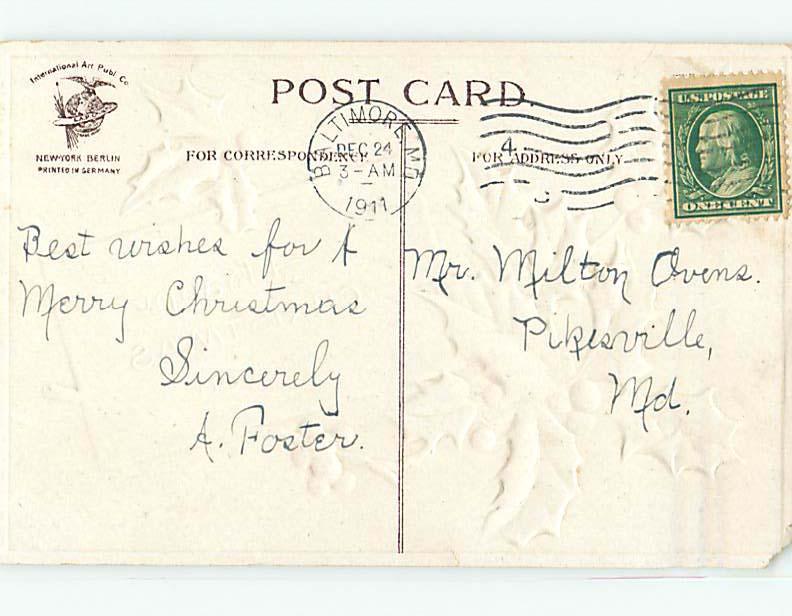 International Art Publ. Co.
NEW-YORK BERLIN
PRINTED IN GERMANY
POST CARD.
FOR CORRESPONDENCE
FOR ADDRESS ONLY
BALTIMORE, MD
DEC 24
3-AM
1911
4
U.S. POSTAGE
ONE CENT
Best wishes for A
Merry Christmas
Sincerely
A. Foster.
Mr. Milton Ovens.
Pikesville,
Md.